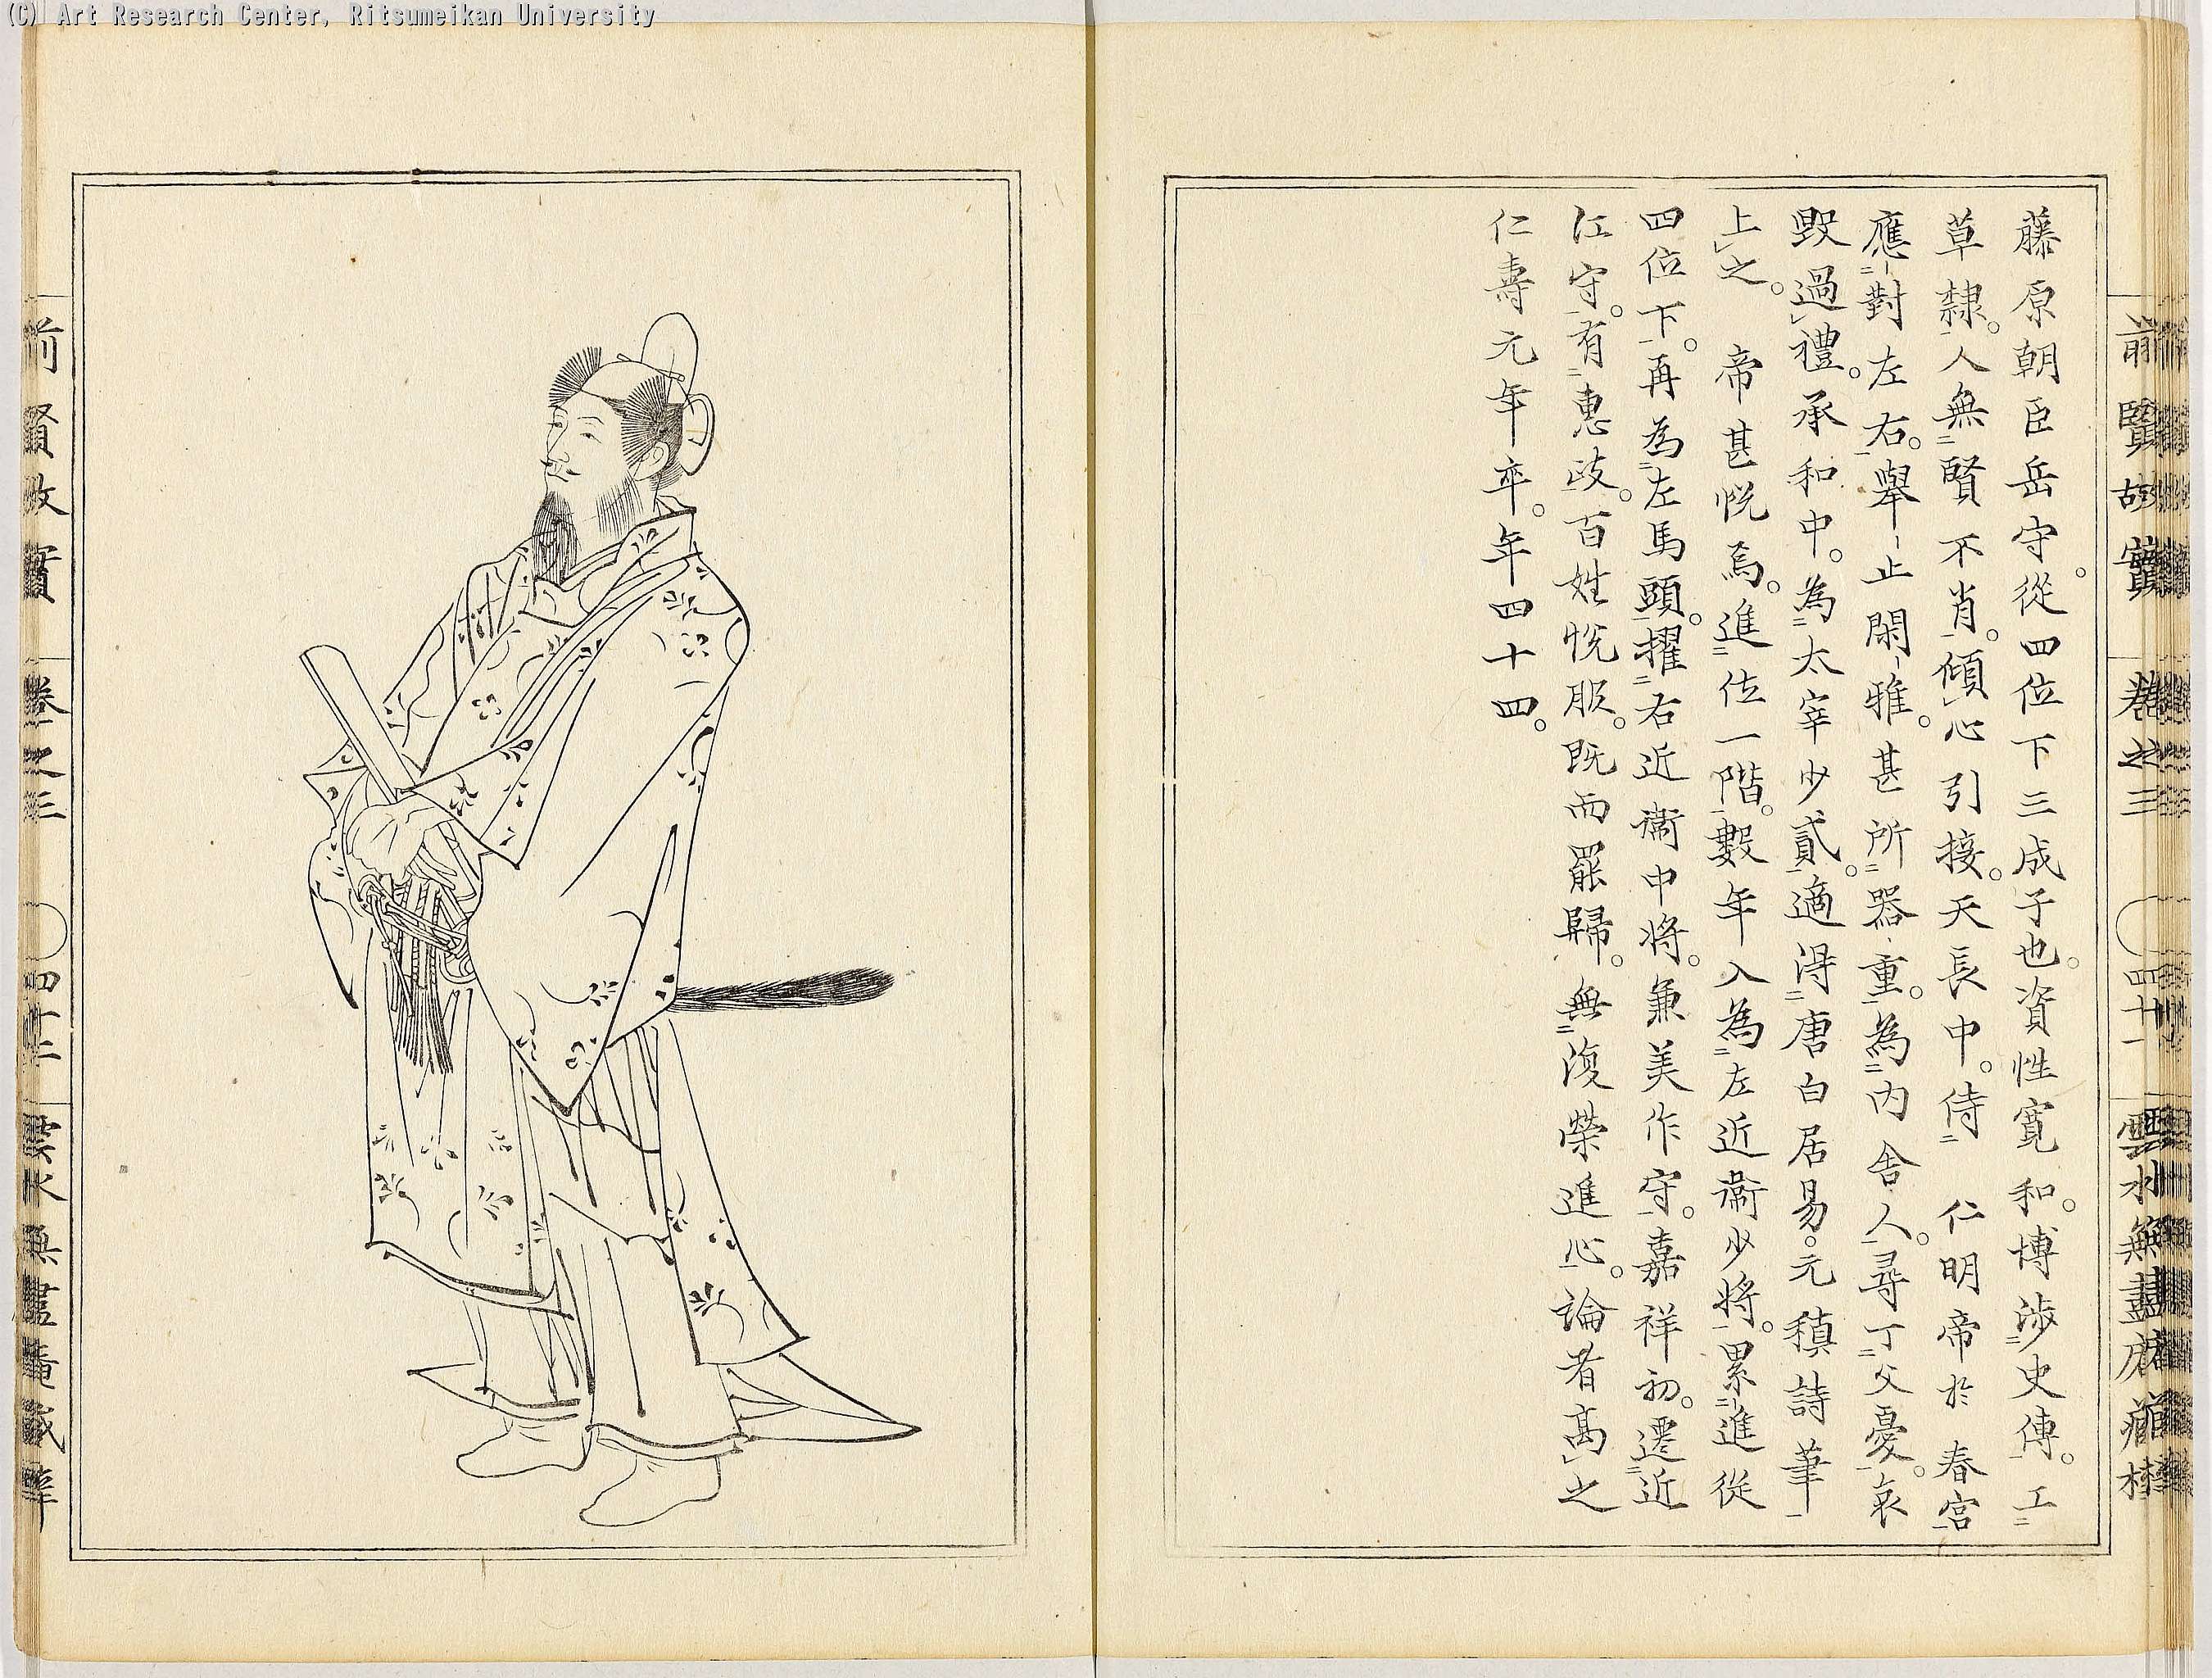 (C) Art Research Center, Ritsumeikan University
前賢故實 卷之三 〇四十一 雲水無盡庵藏梓
藤原朝臣岳守。從四位下三成子也。資性寬和。博涉史傳。工
草隸。人無賢不肖。傾心引接。天長中。侍 仁明帝於春宮
應對左右。舉止閑雅。甚所器重。為内舍人。尋丁父憂。哀
毀過禮。承和中。為太宰少貳。適得唐白居易。元稹詩筆
上之。 帝甚悅焉。進位一階。數年入為左近衞少將。累進從
四位下。再為左馬頭。擢右近衞中將。兼美作守。嘉祥初。遷近
江守。有惠政。百姓悅服。既而罷歸。無復榮進心。論者高之
仁壽元年卒。年四十四。
前賢故實 卷之三 〇四十二 雲水無盡庵藏梓